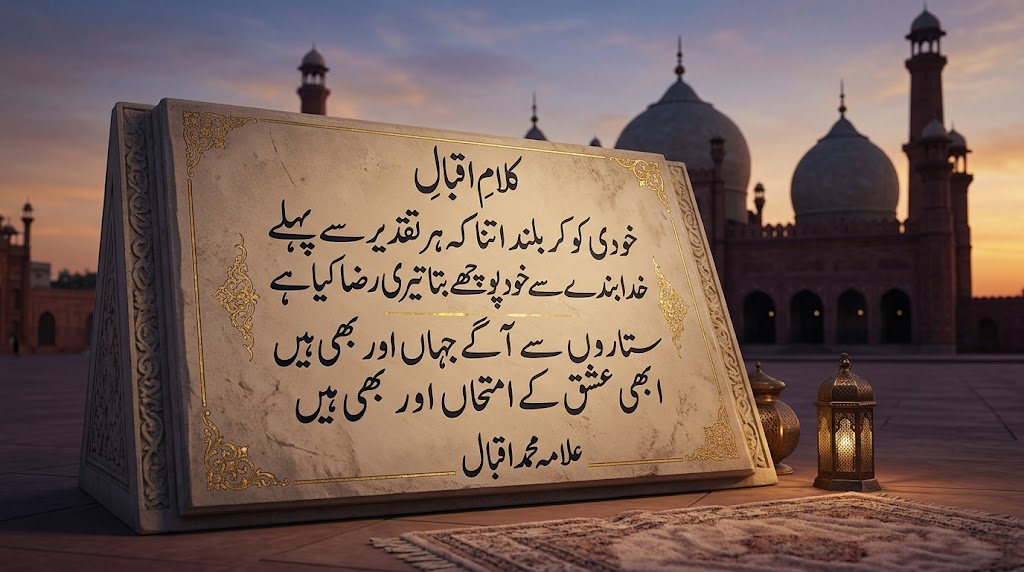 کلامِ اقبالِ
خودی کو کر بلند اتنا کہ ہر تقدیر سے پہلے
خدا بندے سے خود پوچھے بتا تیری رضا کیا ہے
ستاروں سے آگے جہاں اور بھی ہیں
ابھی عشق کے امتحاں اور بھی ہیں
علامہ محمد اقبال